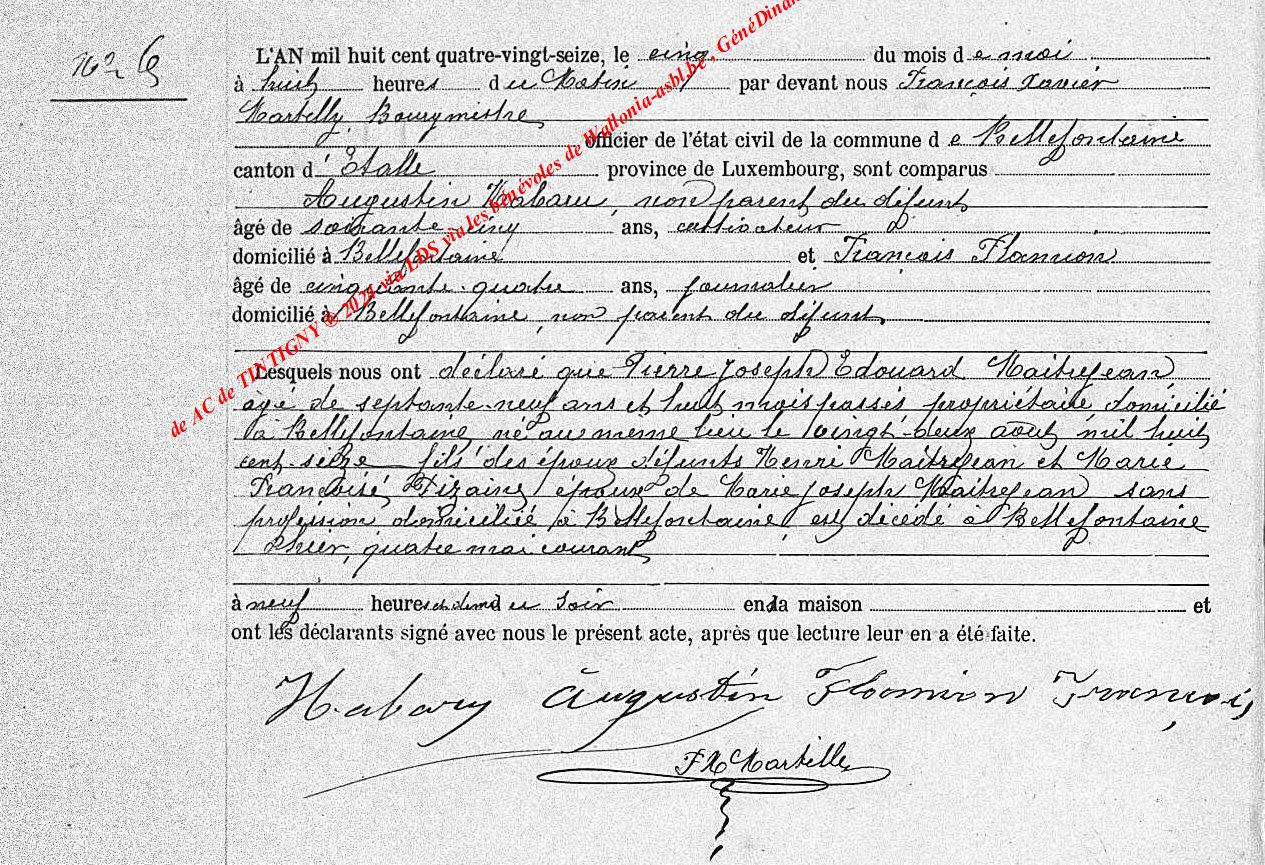 N° 6
L'AN mil huit cent quatre-vingt-seize, le cinq du mois de mai
à huit heures du Matin par devant nous François Xavier
Martelly, Bourgmestre
officier de l'état civil de la commune de Bellefontaine
canton d'Etalle province de Luxembourg, sont comparus
Augustin Habaru, non parent du défunt
âgé de soixante-cinq ans, cultivateur
domicilié à Bellefontaine et François Flamion
âgé de cinquante-quatre ans, journalier
domicilié à Bellefontaine, non parent du défunt,
Lesquels nous ont déclaré que Pierre Joseph Edouard Maitrejean,
âgé de septante-neuf ans et huit mois passés propriétaire, domicilié
à Bellefontaine, né au même lieu le vingt-deux août mil huit
cent-seize fils des époux défunts Henri Maitrejean et Marie
Françoise Dizaine, époux de Marie Joseph Maitrejean sans
profession domiciliée à Bellefontaine, est décédé à Bellefontaine
hier, quatre mai courant
à neuf heures et demi du soir en sa maison et
ont les déclarants signé avec nous le présent acte, après que lecture leur en a été faite.
Habary Augustin Flamion François
F X Martelle
de AC de TINTIGNY ® 2021 via LDS via les bénévoles de Wallonia-asbl.be, GénéDinan